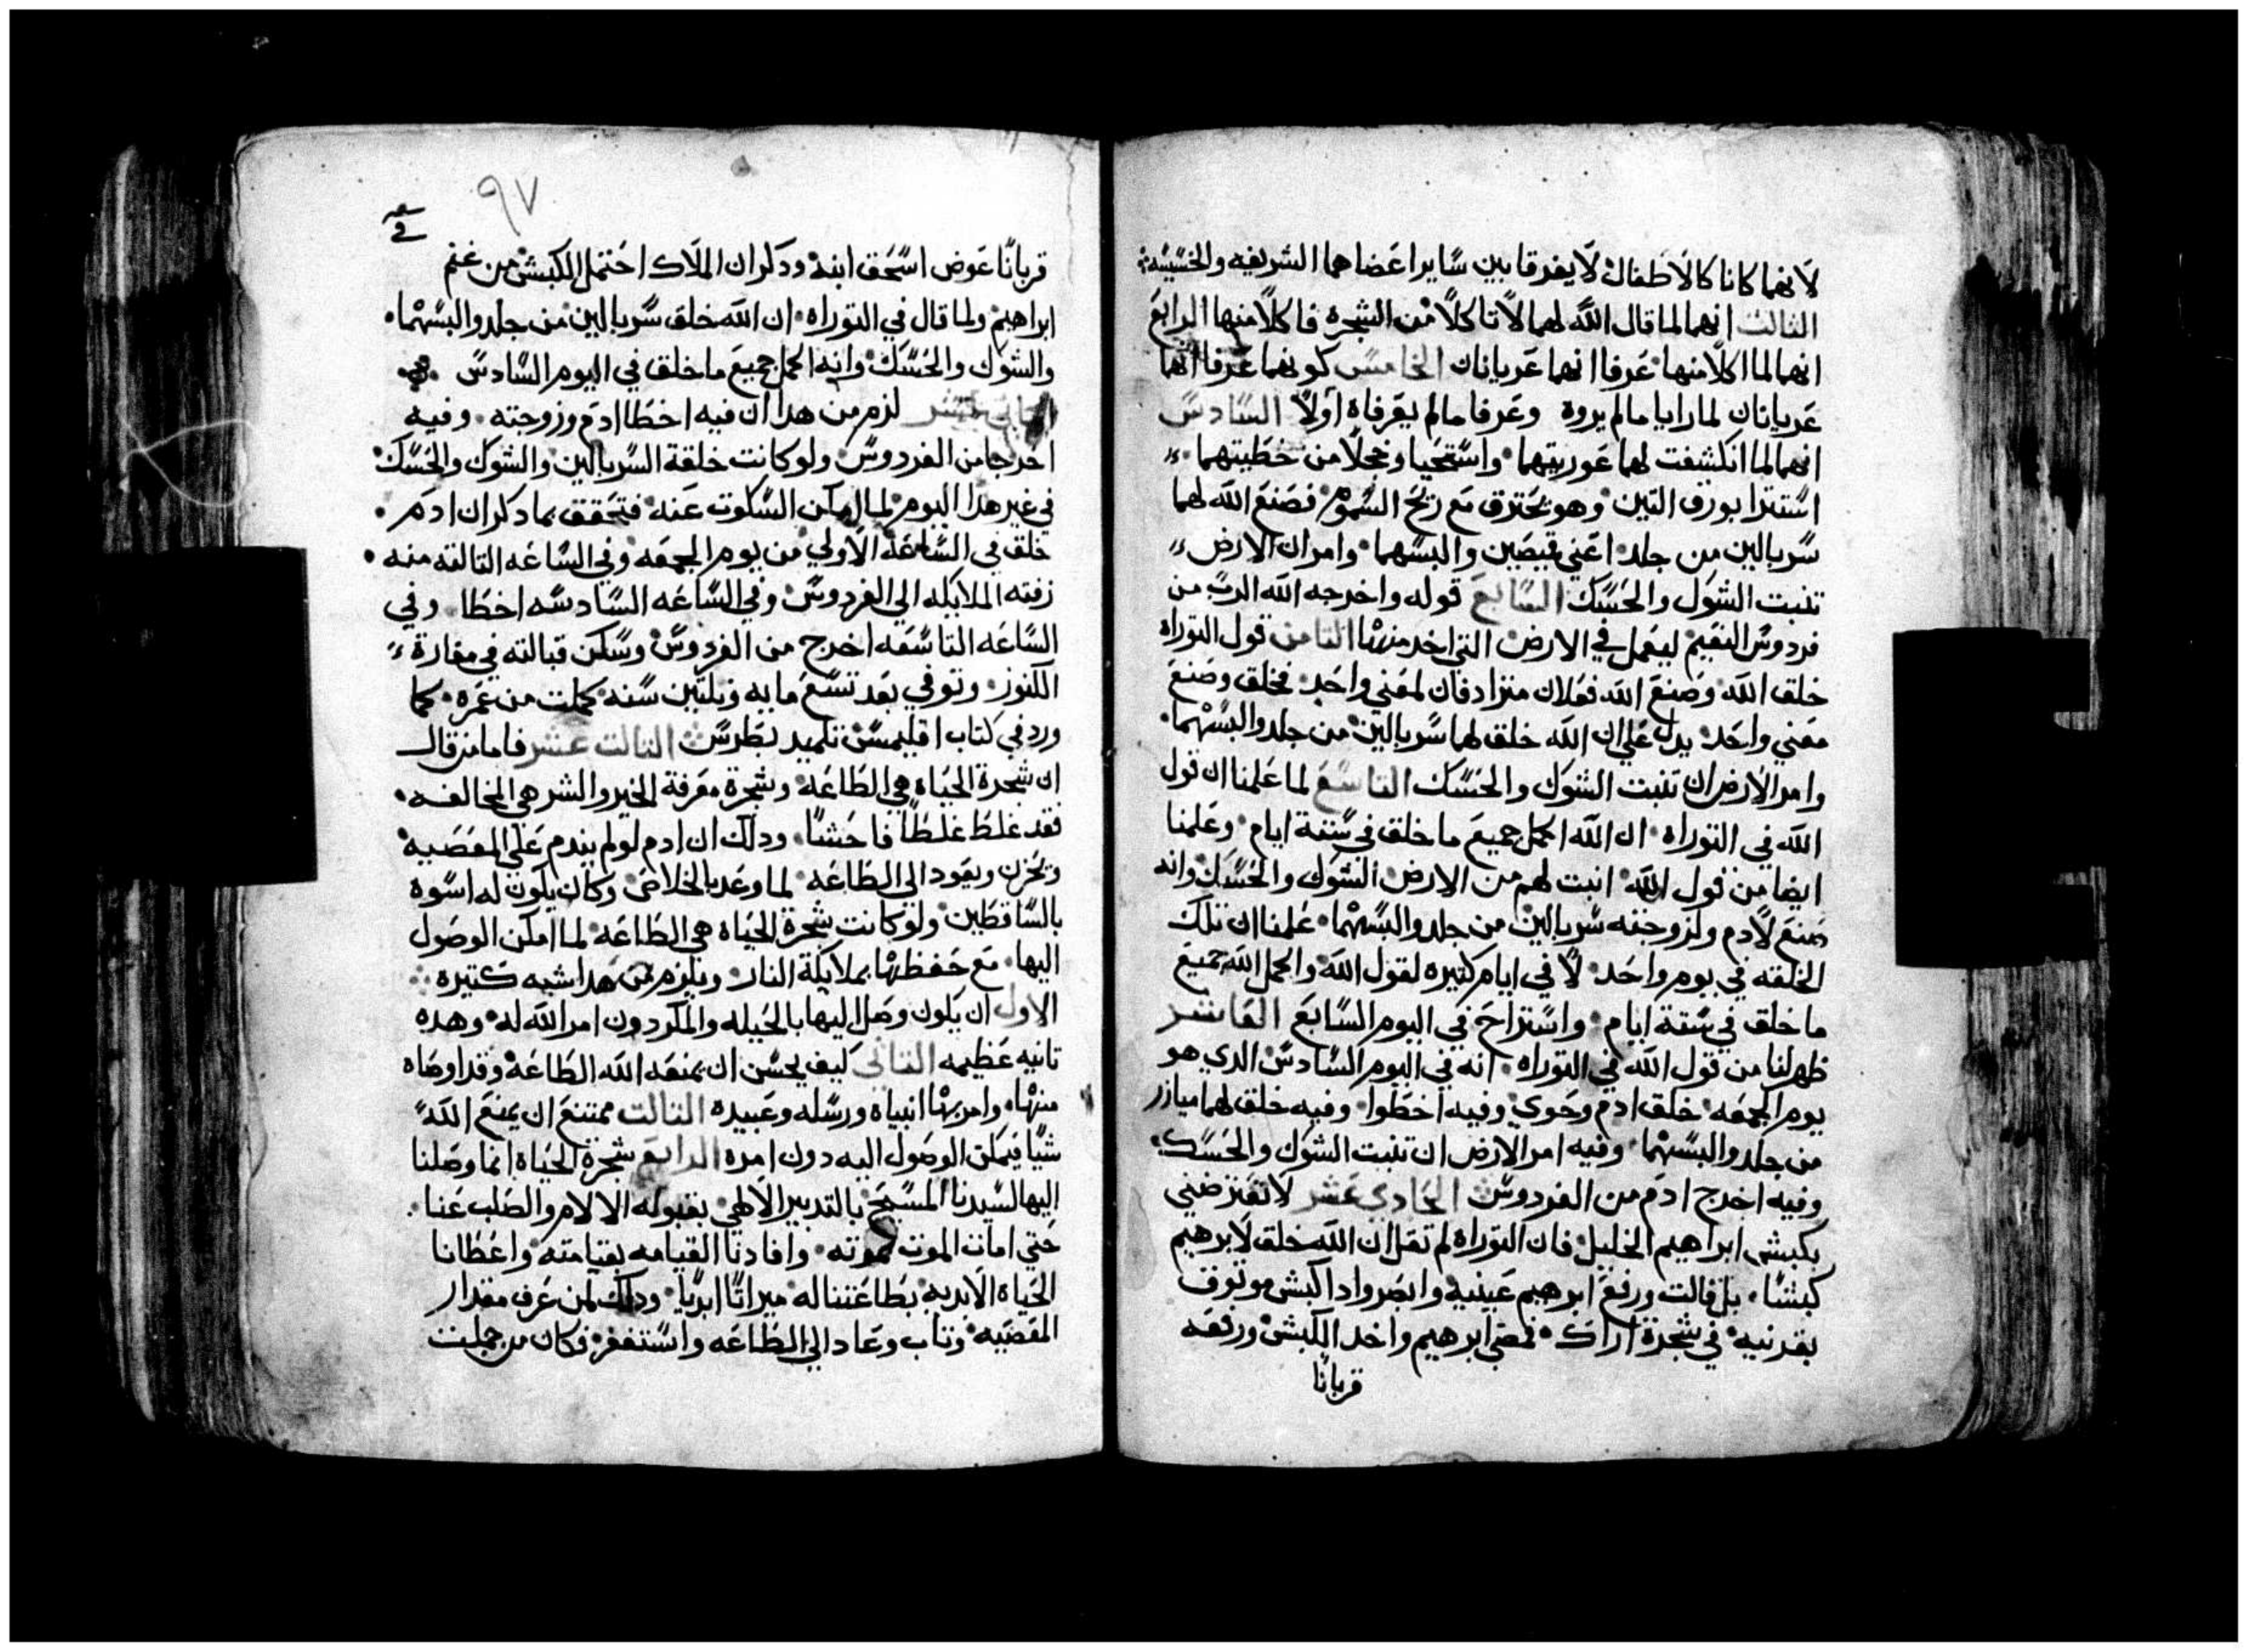 لانهما كانا كالاطفال لا يفرقا بين سايرا عضاهما الشريفه والخسيسه
التالت انهما لما قال الله لهما لا تاكلا من الشجره فاكلا منها الرابع
انهما لما اكلا منها عرفا انهما عريانان الخامس كونهما عرفا انهما
عريانان لما رايا مالم يروه وعرفا مالم يعرفاه اولا السادس
انهما لما انكشفت لهما عوريتهما واستحيا وخجلا من خطيتهما
استترا بورق التين وهو يحترق مع ريح السموم فصنع الله لهما
سربالين من جلد اعني قميصين والبسهما وامر ان الارض
تنبت الشوك والحسك السابع قوله واخرجه الله الرب من
فردوس النعيم ليعمل في الارض التي اخد منها التامن قول التوراه
خلق الله وصنع الله فعلان مترادفان لمعني واحد فخلق وصنع
معني واحد يدل علي ان الله خلق لهما سربالين من جلد والبسهما
وامر الارض ان تنبت الشوك والحسك التاسع لما علمنا ان قول
الله في التوراه ان الله اكمل جميع ما خلق في ستة ايام وعلمنا
ايضا من قول الله انبت لهم من الارض الشوك والحسك وانه
صنع لادم ولزوجته سربالين من جلد والبسهما علمنا ان تلك
الخلقه في يوم واحد لا في ايام كتيره لقول الله واكمل الله جميع
ما خلق في ستة ايام واستراح في اليوم السابع العاشر
ظهر لنا من قول الله في التوراه انه في اليوم السادس الدي هو
يوم الجمعه خلق ادم وحوي وفيه اخطوا وفيه خلق لهما ميازر
من جلد والبسهما وفيه امر الارض ان تنبت الشوك والحسك
وفيه اخرج ادم من الفردوس الحادي عشر لا تعترضني
بكبش ابراهيم الخليل فان التوراه لم تقل ان الله خلق لابرهيم
كبشا بل قالت ورفع ابرهيم عينيه وابصر وادا كبش موتوق
بقرنيه في شجرة اراك فمضي ابرهيم واخد الكبش ورفعه
قربانا
٩٧
قربانا عوض اسحق ابنه ودكر ان الملاك احتمل الكبش من غنم
ابراهيم ولما قال في التوراه ان الله خلق سربالين من جلد والبسهما
والشوك والحسك وانه اكمل جميع ما خلق في اليوم السادس
التاني عشر لزم من هدا ان فيه اخطا ادم وزوجته وفيه
اخرجا من الفردوس ولو كانت خلقة السربالين والشوك والحسك
في غير هدا اليوم لما امكن السكوت عنه فتحقق بما دكر ان ادم
خلق في الساعة الاولي من يوم الجمعه وفي الساعه التالته منه
زفته الملايكه الي الفردوس وفي الساعه السادسه اخطا وفي
الساعه التاسعه اخرج من الفردوس وسكن قبالته في مغارة
الكنوز وتوفي بعد تسع مايه وتلتين سنه كملت من عمره كما
ورد في كتاب اقليمس تلميد بطرس التالت عشر فاما من قال
ان شجرة الحياه هي الطاعه وشجرة معرفة الخير والشر هي المخالفه
فقد غلط غلطا فاحشا ودلك ان ادم لو لم يندم علي المعصيه
ويحزن ويعود الي الطاعه لما وعد بالخلاص وكان يكون له اسوة
بالساقطين ولو كانت شجرة الحياه هي الطاعه لما امكن الوصول
اليها مع حفظها بملايكة النار ويلزم من هدا شبه كتيره
الاول ان يكون وصل اليها بالحيله والمكر دون امر الله له وهده
تانيه عظيمه التاني كيف يحسن ان يمنعه الله الطاعه وقد اوصاه
منها وامر بها انبياه ورسله وعبيده التالت ممتنع ان يمنع الله
شيا فيمكن الوصول اليه دون امره الرابع شجرة الحياه انما وصلنا
اليها لسيدنا المسيح بالتدبير الالهي بقبوله الالام والصلب عنا
حتي امات الموت بموته وافادنا القيامه بقيامته واعطانا
الحياه الابديه بطاعتنا له ميراتا ابديا ودلك لمن عرف مقدار
المعصيه وتاب وعاد الي الطاعه واستغفر فكان من جملت